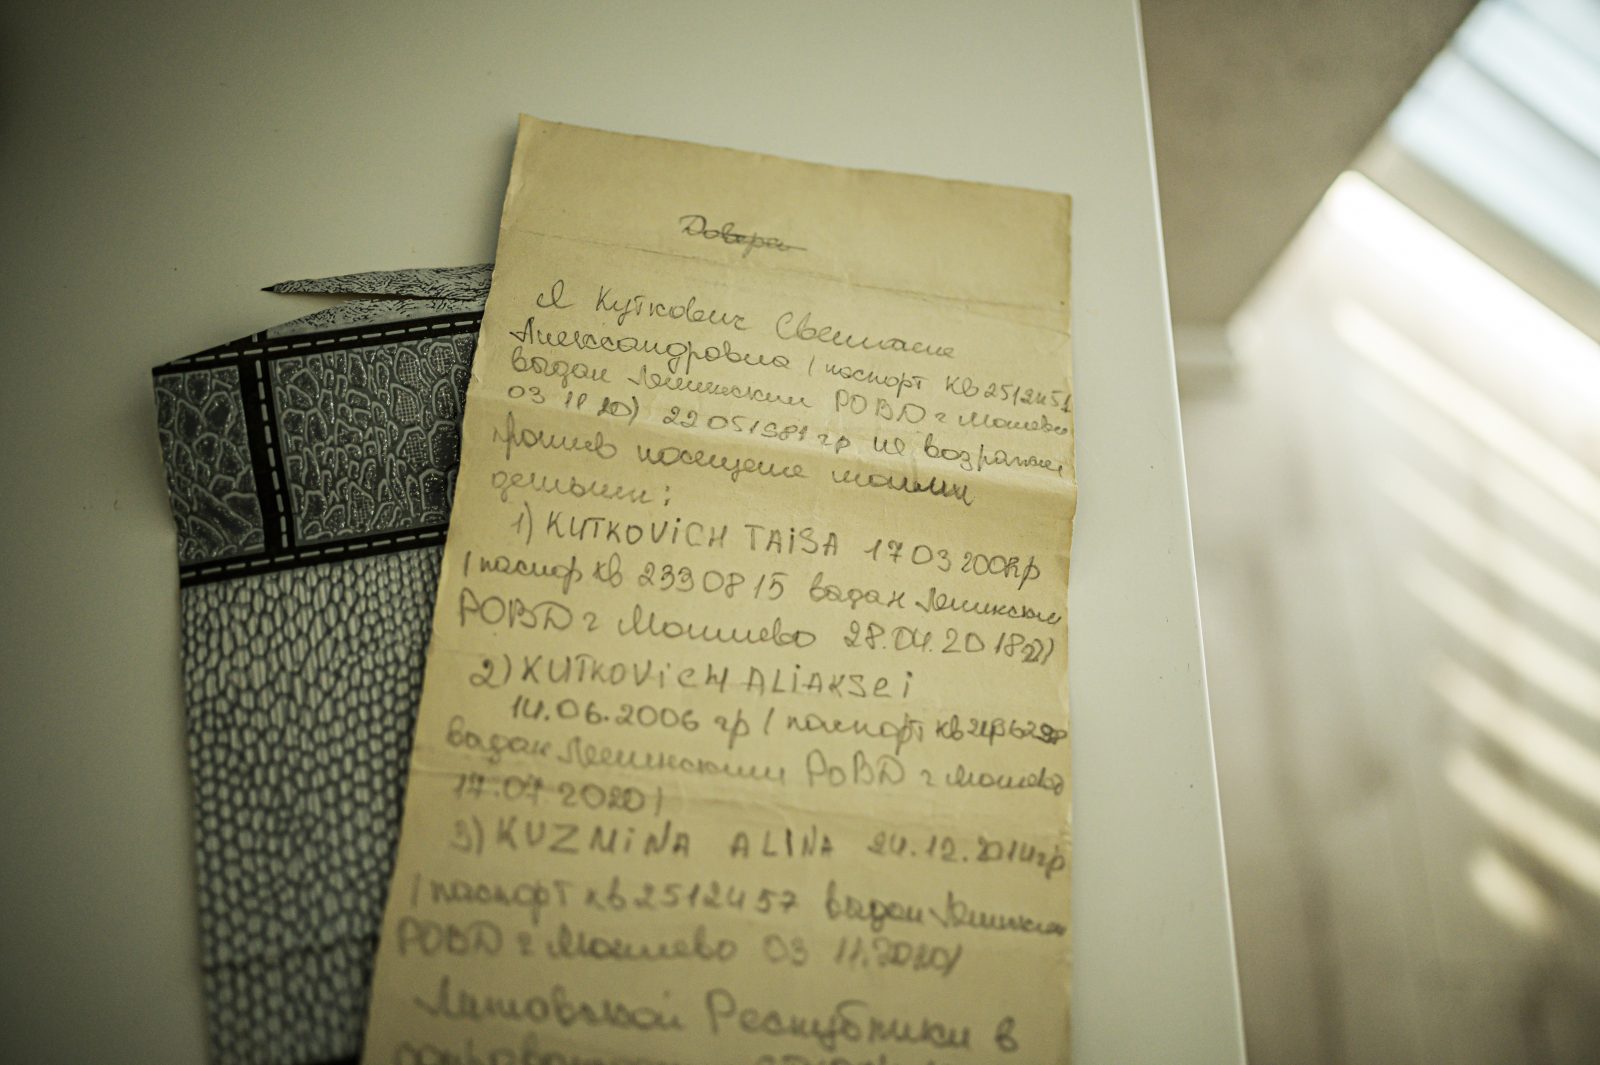 Довера
Я Куткович Светлана
Александровна / паспорт КВ 2512451
выдан Ленинским РОВД г Могилева
03 11 20) 22 05 1981 гр не возражаю
против посещения моими
детьми:
1) KUTKOViCH TAiSA 17 03 гр
/ паспор КВ 2330815 выдан Ленинским
РОВД г Могилева 28.04.2018
2) KUTKOViCH ALiAKSEi
14.06.2006 гр / паспорт КВ
выдан Ленинским РОВД г Могилева
17.07 2020/
3) KUZMiNA ALiNA 24.12.2014гр
/ паспорт КВ 2512457 выдан Ленинским
РОВД г Могилева 03 11.2020/
Литовской Республики в